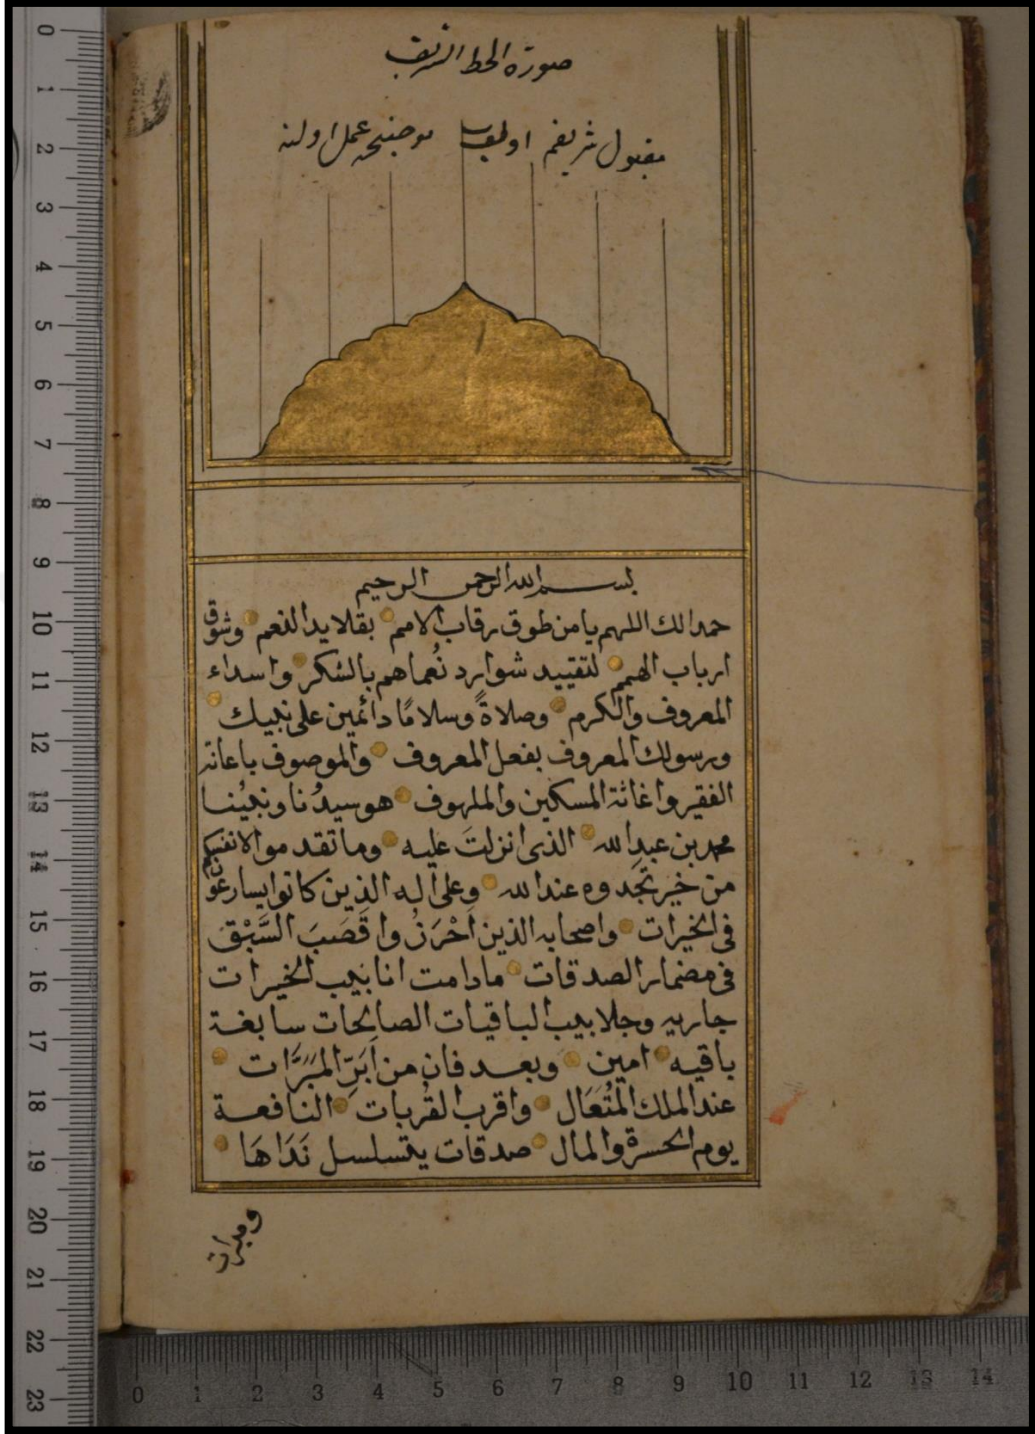 صورة الخط الشريف
مقبول شريفم اولمشدر موجبنجه عمل اولنه
بسم الله الرحمن الرحيم
حمدا لك اللهم يا من طوق رقاب الامم بقلايد النعم وشوق
ارباب الهمم لتقييد شوارد نُعماهم بالشكر واسداء
المعروف والكرم وصلاةً وسلامًا دائمين على نبيك
ورسولك المعروف بفعل المعروف والموصوف باعانة
الفقير واغاثة المسكين والملهوف هو سيدُنا ونبيُنا
محمد بن عبدِ الله الذى انزلتَ عليه وما تقدموا لانفسكم
من خير تَجدوه عند الله وعلى اله الذين كانوا يسارعون
فى الخيرات واصحابه الذين اَحْرَزُوا قَصَبَ السَّبْق
فى مضمار الصدقات ما دامت انابيب الخيرات
جاريه وجلابيب الباقيات الصالحات سابغة
باقيه امين وبعد فان من اَبَرِّ المَبَرَّات
عند الملك المُتَعَال واقرب القُربات النافعة
يوم الحسرة والمال صدقات يتسلسل نَدَاهَا
ومبرات
0 1 2 3 4 5 6 7 8 9 10 11 12 13 14 15 16 17 18 19 20 21 22 23
0 1 2 3 4 5 6 7 8 9 10 11 12 13 14